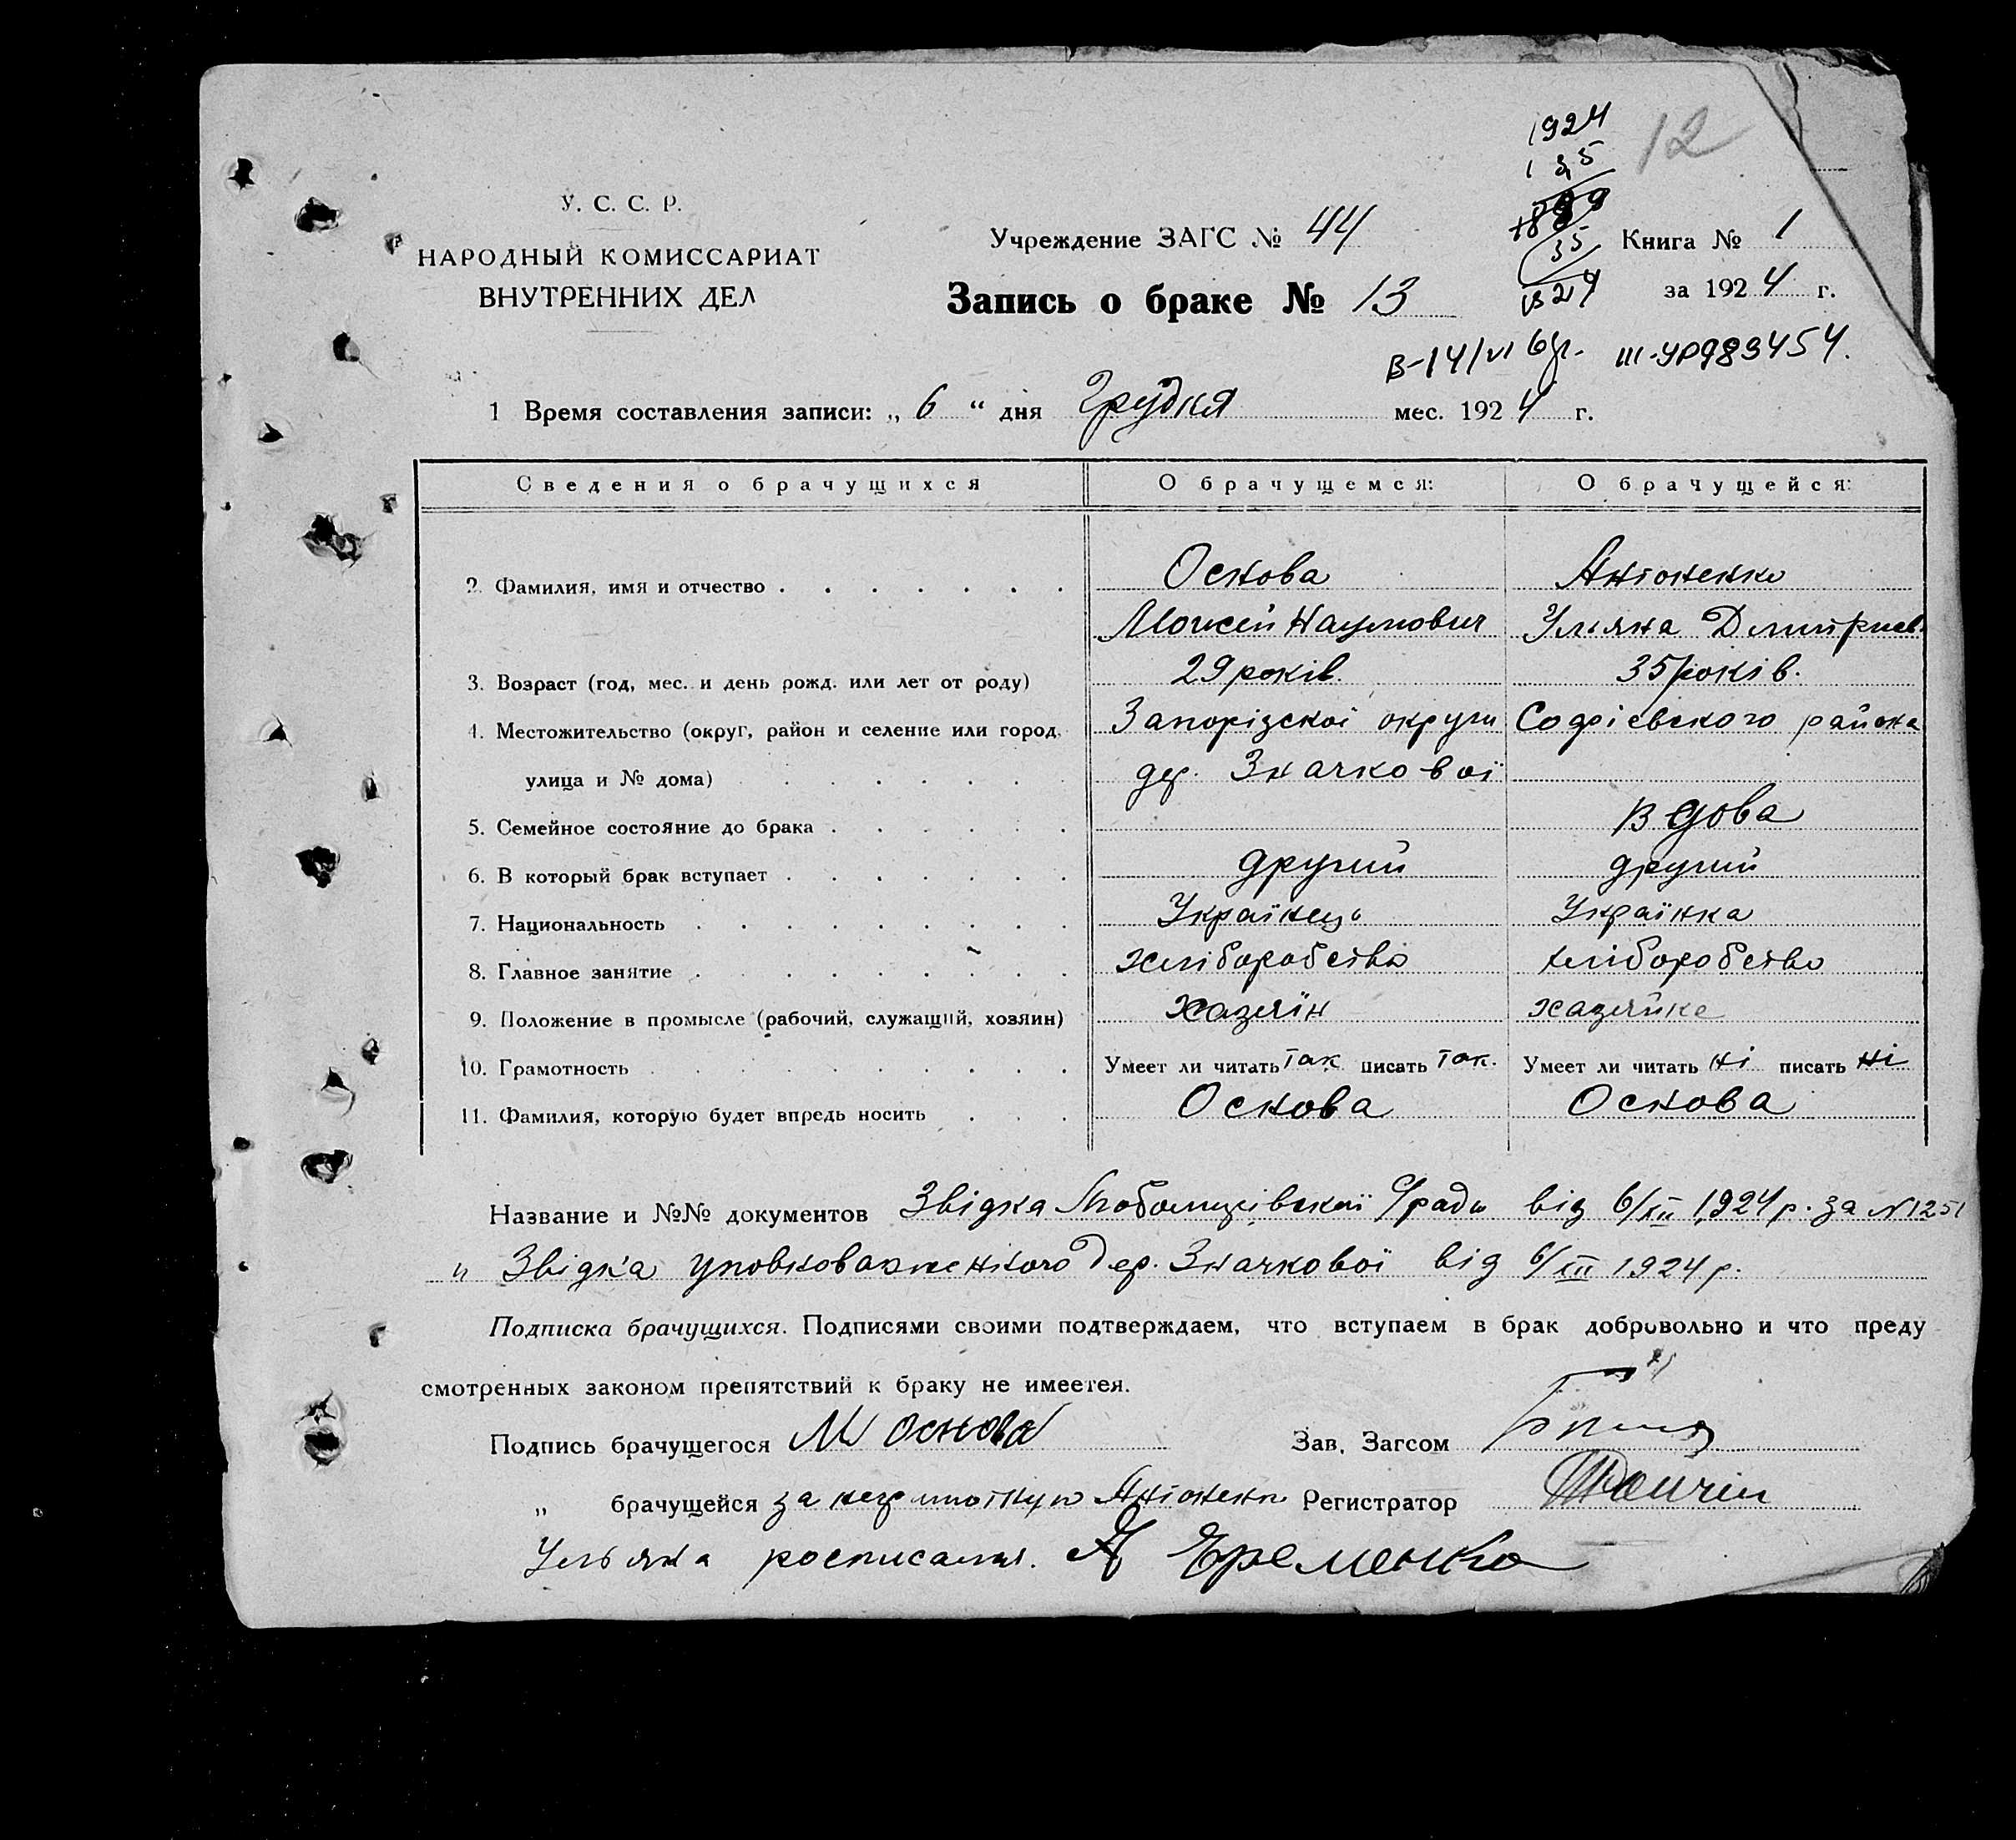 12
1924
35
1889
35
1924
У. С. С. Р.
НАРОДНЫЙ КОМИССАРИАТ
ВНУТРЕННИХ ДЕЛ
Учреждение ЗАГС № 44
Книга № 1
Запись о браке № 13
за 1924 г.
В-14/VI 6 ІІІ-УР 983454.
1 Время составления записи: „ 6 “ дня Грудня мес. 1924 г.
Сведения о брачущихся О брачущемся: О брачущейся:
2. Фамилия, имя и отчество Основа Антоненко
Моисей Наумович Ульяна Дмитриев.
3. Возраст (год, мес. и день рожд. или лет от роду) 29 років. 35 років.
4. Местожительство (округ, район и селение или город, Запорізскоі округи Софіевского района
улица и № дома) дер. Значковоі
5. Семейное состояние до брака вдова
6. В который брак вступает другий другий
7. Национальность Українець Українка
8. Главное занятие хліборобство хліборобство
9. Положение в промысле (рабочий, служащий, хозяин) хазяїн хазяйке
10. Грамотность Умеет ли читать так писать так. Умеет ли читать ні писать ні
11. Фамилия, которую будет впредь носить Основа Основа
Название и №№ документов Звідка с/ради від 6/XII 1924 р. за N 1251
и Звідка уповноваженного дер. Значковоі від 6/XII 1924 р.
Подписка брачущихся. Подписями своими подтверждаем, что вступаем в брак добровольно и что преду
смотренных законом препятствий к браку не имеетея.
Подпись брачущегося М Основа Зав. Загсом
„ брачущейся за неграмотную Антоненко Регистратор
Ульяна росписался. Еременко